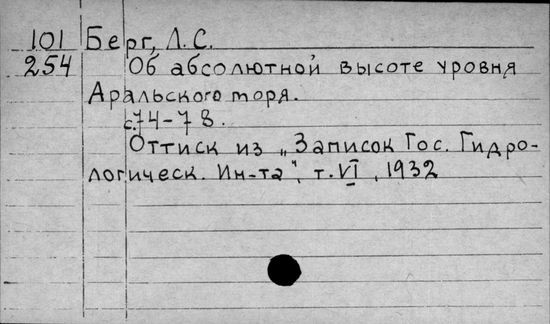 101 Берг, Л.С.
254 Об абсолютной высоте уровня
Аральского моря.
с.74-78.
Оттиск из „Записок Гос. Гидро-
логическ. Ин-та", т. VI, 1932